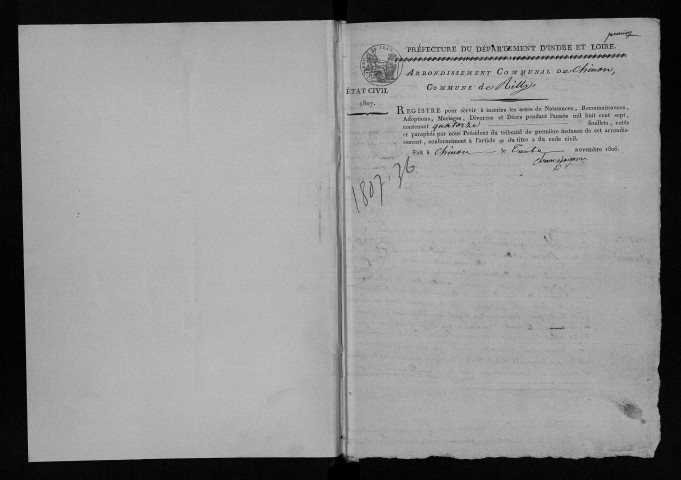 premier
PRÉFECTURE DU DÉPARTEMENT D'INDRE ET LOIRE.
ARRONDISSEMENT COMMUNAL DE Chinon,
COMMUNE de Rilly
ÉTAT CIVIL
1807.
REGISTRE pour servir à inscrire les actes de Naissances, Reconnaissances,
Adoptions, Mariages, Divorces et Décès pendant l'année mil huit cent sept,
contenant quatorze feuillets, cotés
et paraphés par nous Président du tribunal de première instance de cet arrondis-
sement, conformément à l'article 41 du titre 2 du code civil.
Fait à Chinon le trente novembre 1806.
1807.36